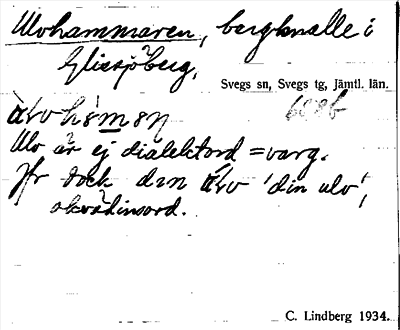 Ulvhammaren, bergknalle i
Glissjöberg,
Svegs sn, Svegs tg, Jämtl. län.
Ulv är ej dialektord = varg.
Jfr dock din 'din ulv',
okvädinsord.
C. Lindberg 1934.